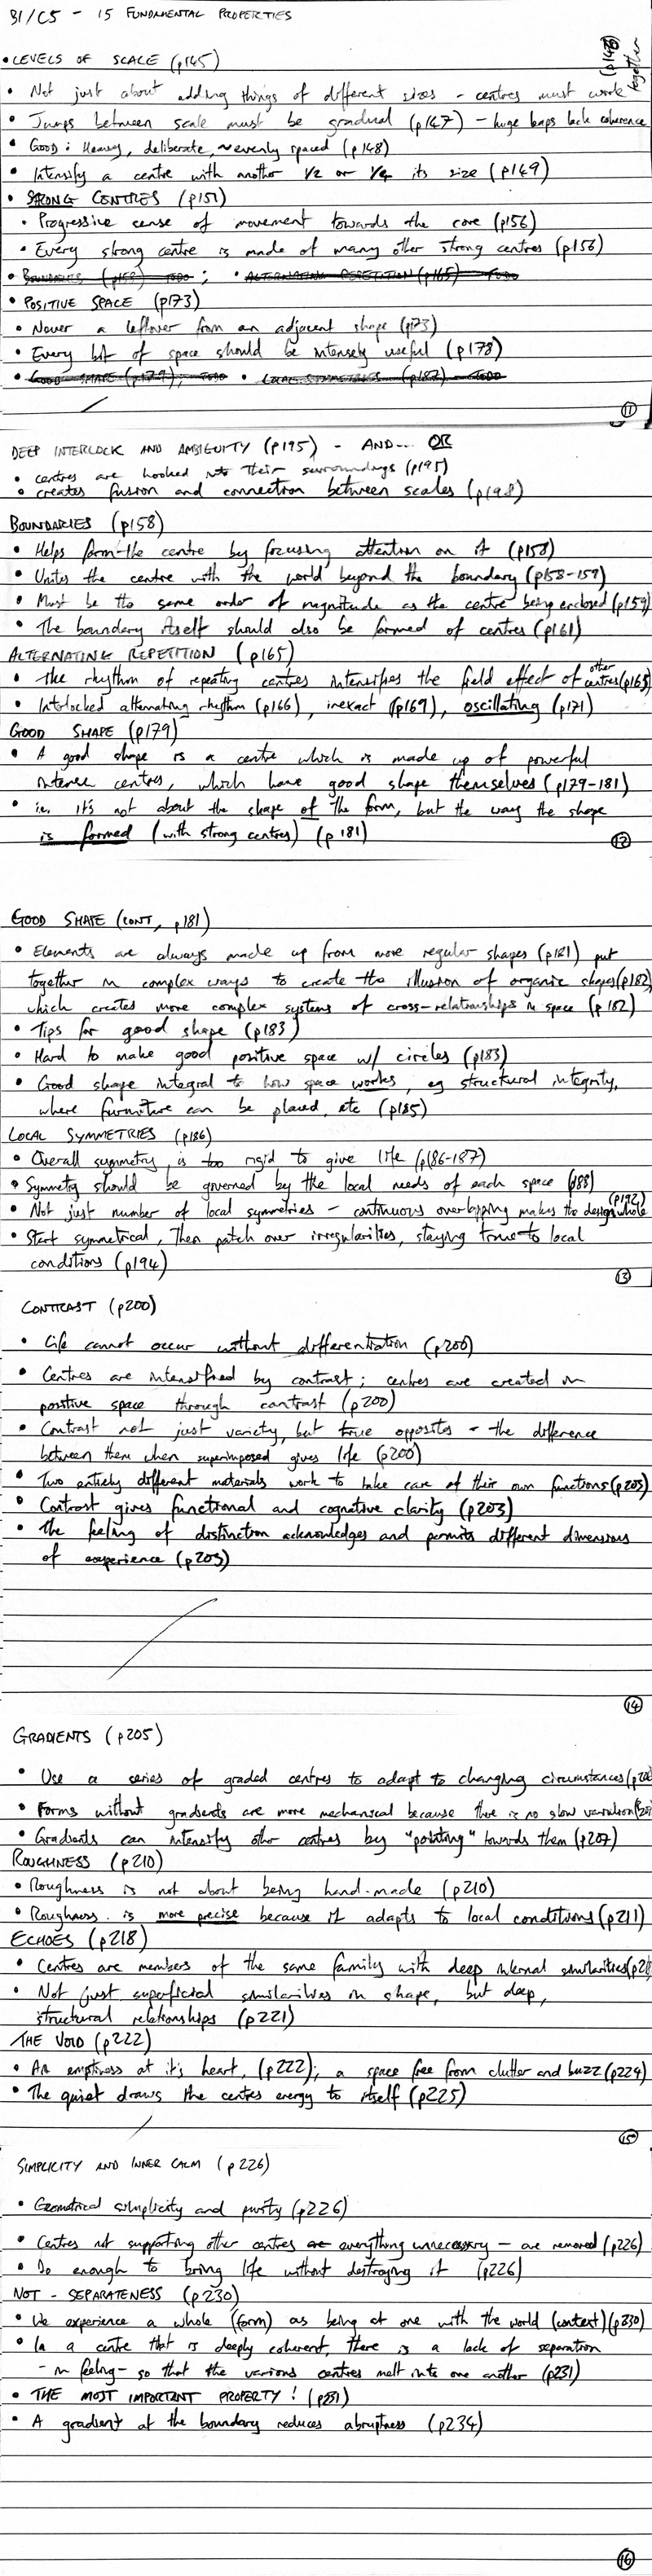 B1/C5 - 15 FUNDAMENTAL PROPERTIES
• LEVELS OF SCALE (p145)
• Not just about adding things of different sizes - centres must work together (p148)
• Jumps between scale must be gradual (p147) - huge leaps lack coherence
• Good: Heavy, deliberate, ~evenly spaced (p148)
• Intensify a centre with another 1/2 or 1/4 its size (p149)
• STRONG CENTRES (p151)
• Progressive sense of movement towards the core (p156)
• Every strong centre is made of many other strong centres (p156)
• BOUNDARIES (p158) TODO ; • ALTERNATING REPETITION (p165) - TODO
• POSITIVE SPACE (p173)
• Never a leftover from an adjacent shape (p73)
• Every bit of space should be intensely useful (p178)
• GOOD SHAPE (p179); TODO • LOCAL SYMMETRIES (p187) - TODO
11
DEEP INTERLOCK AND AMBIGUITY (p195) - AND... OR
• centres are hooked into their surroundings (p195)
• creates fusion and connection between scales (p198)
BOUNDARIES (p158)
• Helps form the centre by focusing attention on it (p158)
• Unites the centre with the world beyond the boundary (p158-159)
• Must be the same order of magnitude as the centre being enclosed (p159)
• The boundary itself should also be formed of centres (p161)
ALTERNATING REPETITION (p165)
• The rhythm of repeating centres intensifies the field effect of other centres (p165)
• Interlocked alternating rhythm (p166), inexact (p169), oscillating (p171)
GOOD SHAPE (p179)
• A good shape is a centre which is made up of powerful
intense centres, which have good shape themselves (p179-181)
• ie. it's not about the shape of the form, but the way the shape
is formed (with strong centres) (p181)
12
GOOD SHAPE (CONT, p181)
• Elements are always made up from more regular shapes (p181) put
together in complex ways to create the illusion of organic shapes (p182),
which creates more complex systems of cross-relationships in space (p182)
• Tips for good shape (p183)
• Hard to make good positive space w/ circles (p183)
• Good shape integral to how space works, eg structural integrity,
where furniture can be placed, etc (p185)
LOCAL SYMMETRIES (p186)
• Overall symmetry is too rigid to give life (p186-187)
• Symmetry should be governed by the local needs of each space (p188)
• Not just number of local symmetries - continuous overlapping makes the design whole (p192)
• Start symmetrical, then patch over irregularities, staying true to local
conditions (p194)
13
CONTRAST (p200)
• Life cannot occur without differentiation (p200)
• Centres are intensified by contrast; centres are created in
positive space through contrast (p200)
• Contrast not just variety, but true opposites - the difference
between them when superimposed gives life (p200)
• Two entirely different materials work to take care of their own functions (p203)
• Contrast gives functional and cognative clarity (p203)
• The feeling of distinction acknowledges and permits different dimensions
of experience (p203)
14
GRADIENTS (p205)
• Use a series of graded centres to adapt to changing circumstances
• Forms without gradients are more mechanical because there is no slow variation
• Gradients can intensify other centres by "pointing" towards them (p207)
ROUGHNESS (p210)
• Roughness is not about being hand-made (p210)
• Roughness is more precise because it adapts to local conditions (p211)
ECHOES (p218)
• Centres are members of the same family with deep internal similarities
• Not just superficial similarities in shape, but deep,
structural relationships (p221)
THE VOID (p222)
• An emptiness at it's heart, (p222); a space free from clutter and buzz (p224)
• The quiet draws the centres energy to itself (p225)
15
SIMPLICITY AND INNER CALM (p226)
• Geometrical simplicity and purity (p226)
• Centres not supporting other centres are everything unnecessary - are removed (p226)
• Do enough to bring life without destroying it (p226)
NOT-SEPARATENESS (p230)
• We experience a whole (form) as being at one with the world (context) (p230)
• In a centre that is deeply coherent, there is a lack of separation
- in feeling - so that the various centres melt into one another (p231)
• THE MOST IMPORTANT PROPERTY! (p231)
• A gradient at the boundary reduces abruptness (p234)
16